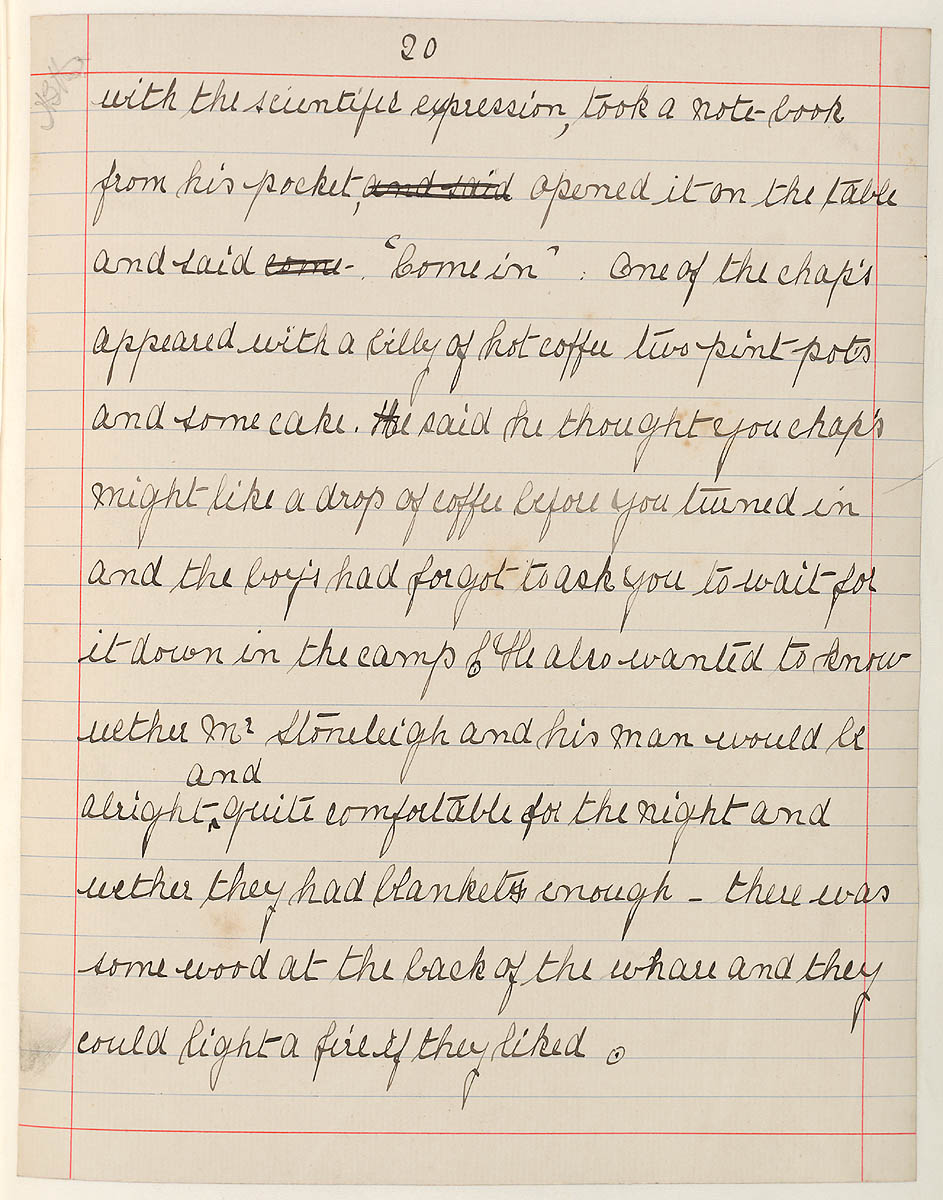 20
with the scientific expression, took a note-book
from his pocket, and said opened it on the table
and said come - . "Come in" . One of the chap's
appeared with a billy of hot coffee two pint pots
and some cake. He said he thought you chap's
might like a drop of coffee before you turned in
and the boy's had forgot to ask you to wait for
it down in the camp. He also wanted to know
wether Mr Stoneleigh and his man would be
and
alright, quite comfortable for the night and
wether they had blankets enough - there was
some wood at the back of the whare and they
could light a fire if they liked .